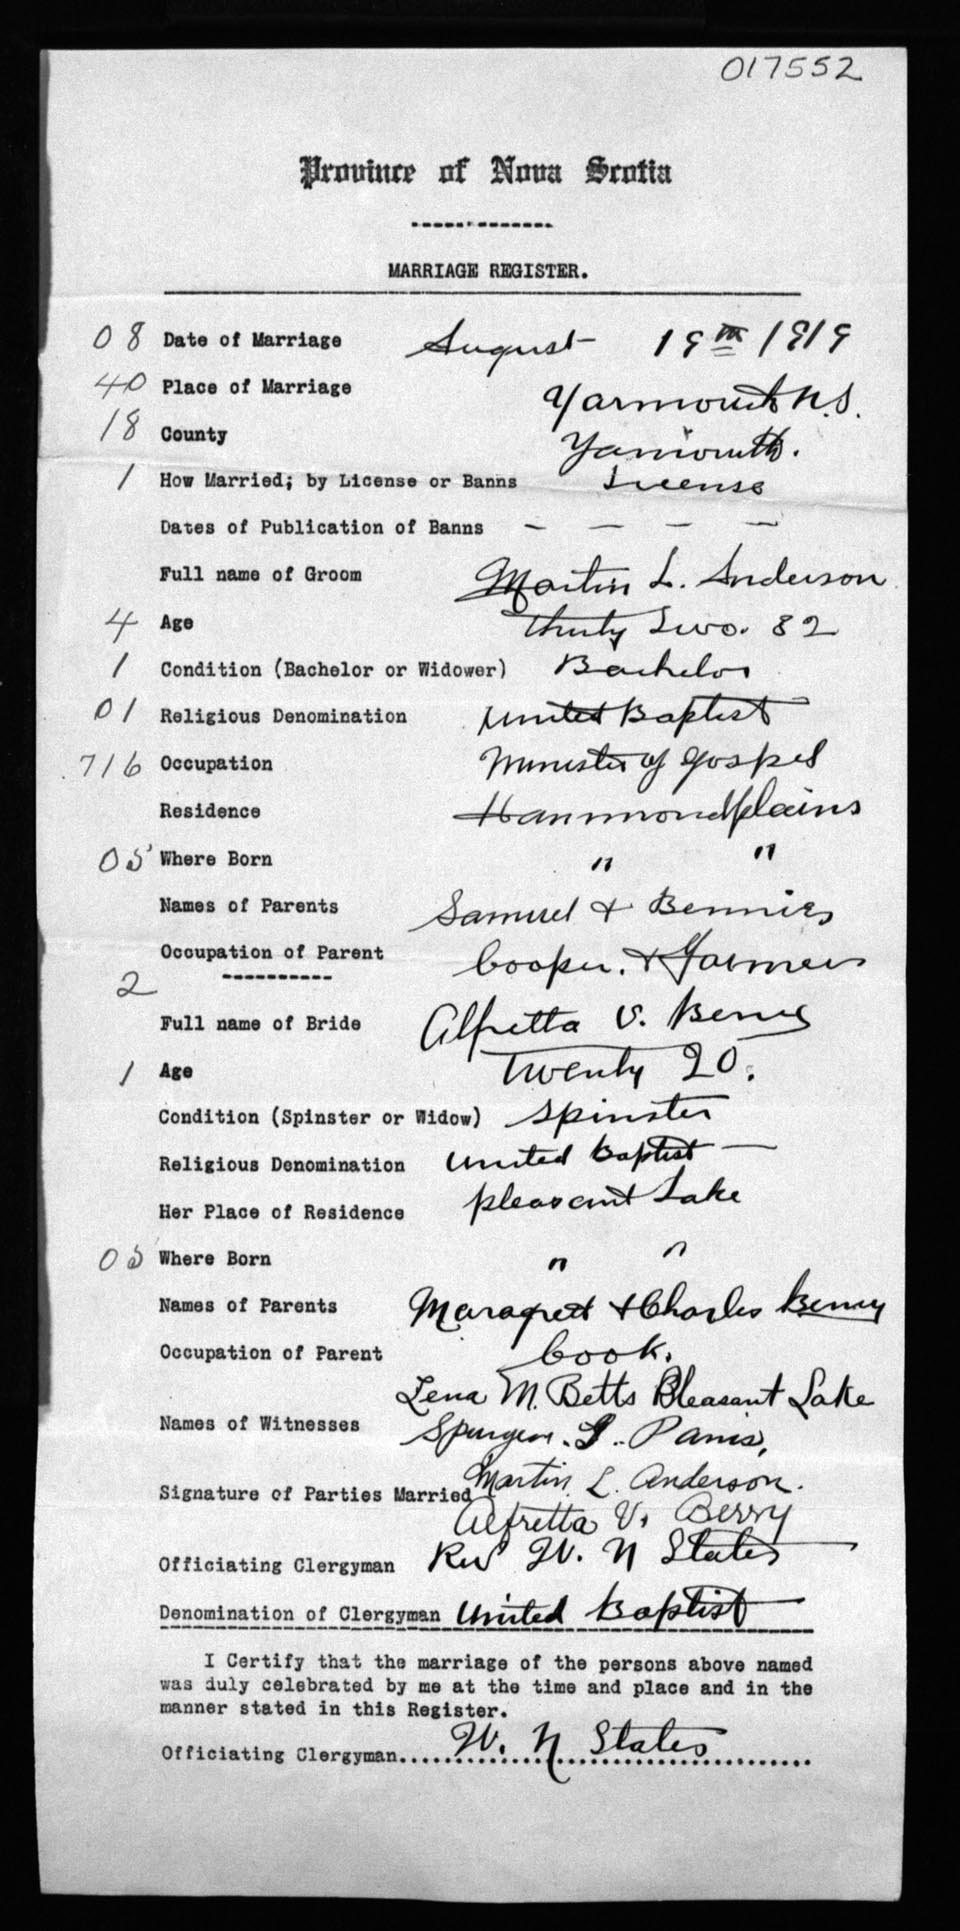 017552
Province of Nova Scotia
MARRIAGE REGISTER.
08 Date of Marriage August 19th 1919
40 Place of Marriage Yarmouth N.S.
18 County Yarmouth.
1 How Married; by License or Banns License
Dates of Publication of Banns — — — —
Full name of Groom Martin L. Anderson
4 Age Thirty Two. 32
1 Condition (Bachelor or Widower) Bachelor
01 Religious Denomination United Baptist
716 Occupation Minister of Gospel
Residence Hammond plains
05 Where Born " "
Names of Parents Samuel &
Occupation of Parent Cooper. & Farmer
2
Full name of Bride Alfretta V. Berry
1 Age Twenty 20.
Condition (Spinster or Widow) Spinster
Religious Denomination United Baptist —
Her Place of Residence pleasant Lake
05 Where Born " "
Names of Parents Maragrett & Charles Berry
Occupation of Parent Cook.
Lena M. Betts Pleasant Lake
Names of Witnesses Spurgeon
Martin L. Anderson.
Signature of Parties Married
Alfretta V. Berry
Officiating Clergyman Rev W. N States
Denomination of Clergyman United Baptist
I Certify that the marriage of the persons above named
was duly celebrated by me at the time and place and in the
manner stated in this Register.
Officiating Clergyman.... W. N States